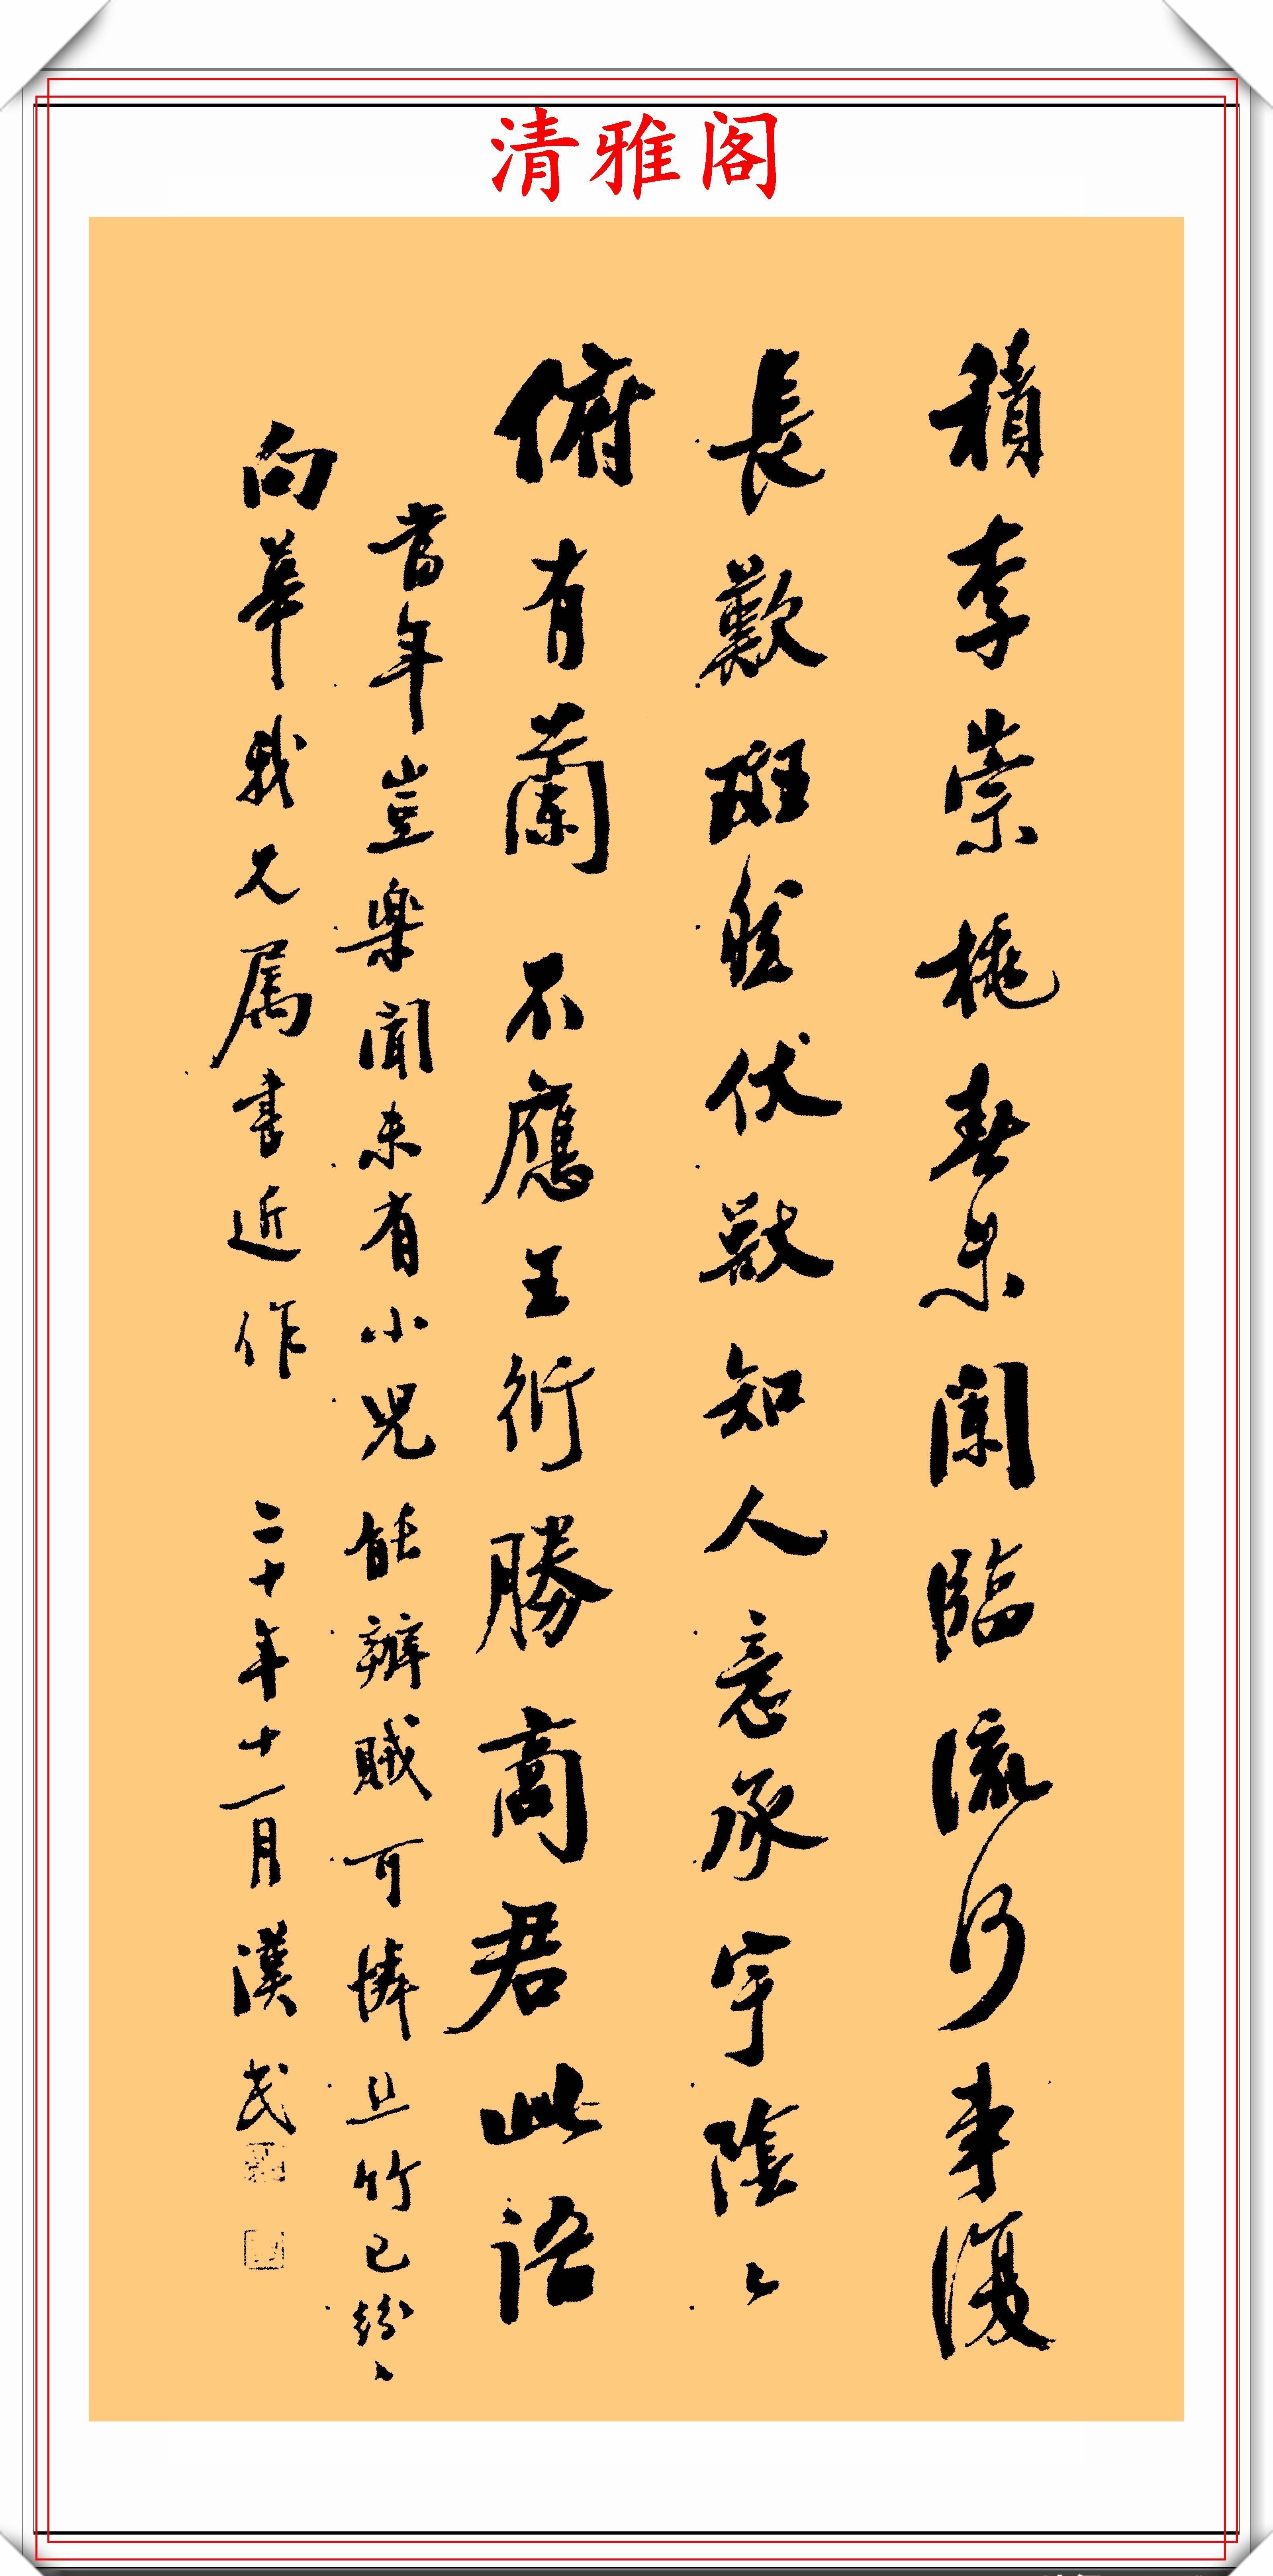 清雅阁
積李崇桃春未闌臨流何事復
長歎斑然伏獸知人意承宇陰々
俯有蘭不應王衍勝商君此語
當年豈樂聞未有小兒能辨賊可憐且竹已紛々
向華我兄属書近作 二十年十一月漢民